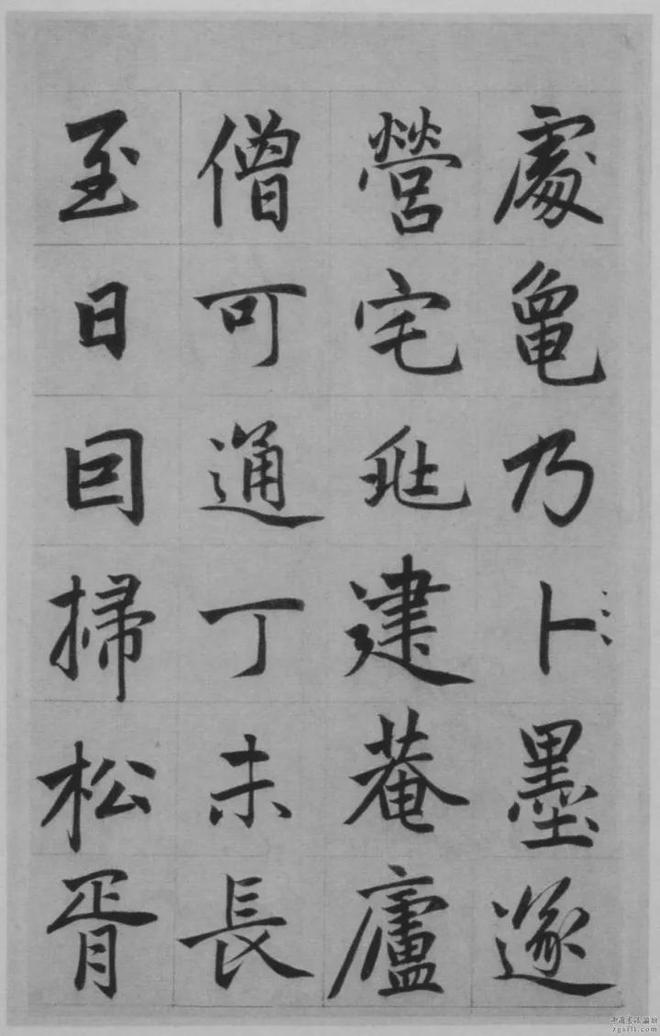 處龜乃卜墨遂
營宅兆建菴廬
僧可通丁未長
至日因掃松胥
zgsfll.com